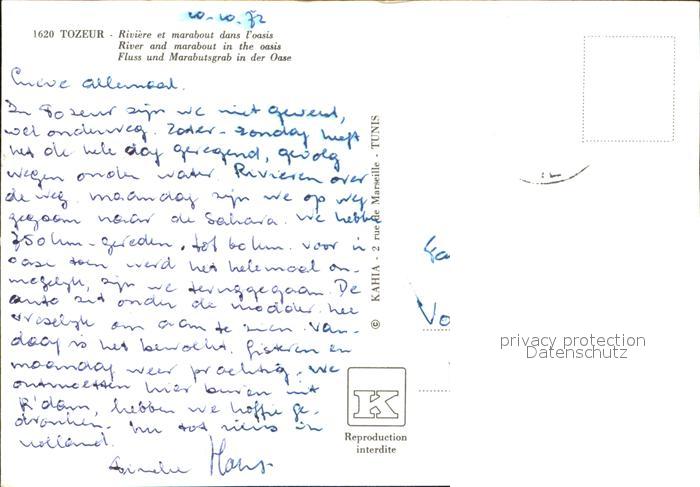 20.10.72
1620 TOZEUR - Rivière et marabout dans l'oasis
River and marabout in the oasis
Fluss und Marabutsgrab in der Oase
Lieve allemaal.
In Tozeur zijn we niet geweest,
wel onderweg. Zater-zondag heeft
het de hele dag geregend, gevolg
wegen onder water. Rivieren over
de weg. maandag zijn we op weg
gegaan naar de Sahara. We hebben
250 km-gereden, tot 60 km. voor in
oase toen werd het helemaal on-
mogelijk, zijn we teruggegaan. De
auto zat onder de modder. hee
vreselijk om aan te zien. Van-
daag is het bewolkt. Gisteren en
maandag weer prachtig. We
ontmoetten hier buren uit
R'dam, hebben we koffie ge-
dronken. Nu tot ziens in
Holland.
Hans
© KAHIA - 2 rue de Marseille - TUNIS
K
Reproduction
interdite
Vo
privacy protection
Datenschutz